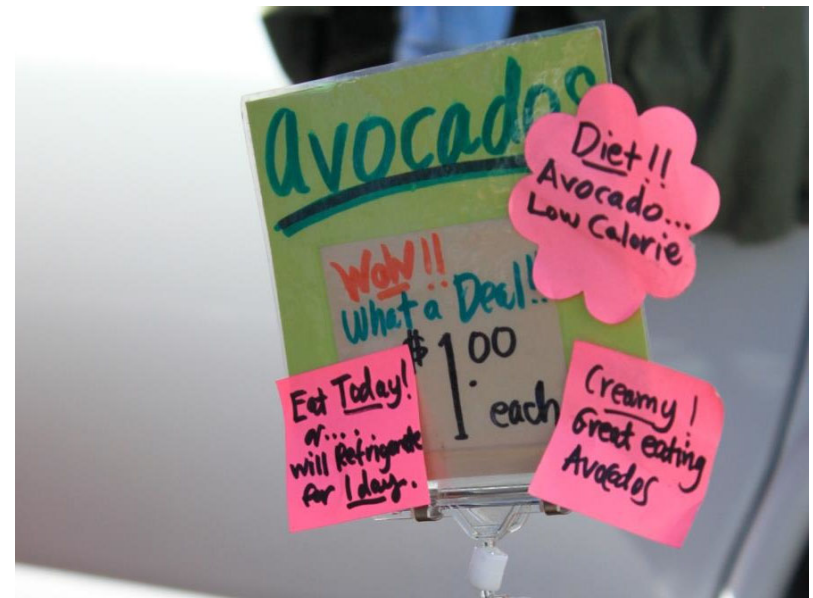 avocados
Diet!!
Avocado...
Low Calorie
WoW!!
What a Deal!!
$1.00
each
Eat Today!
or....
will Refrigerate
for 1 day.
Creamy!
Great eating
Avocados